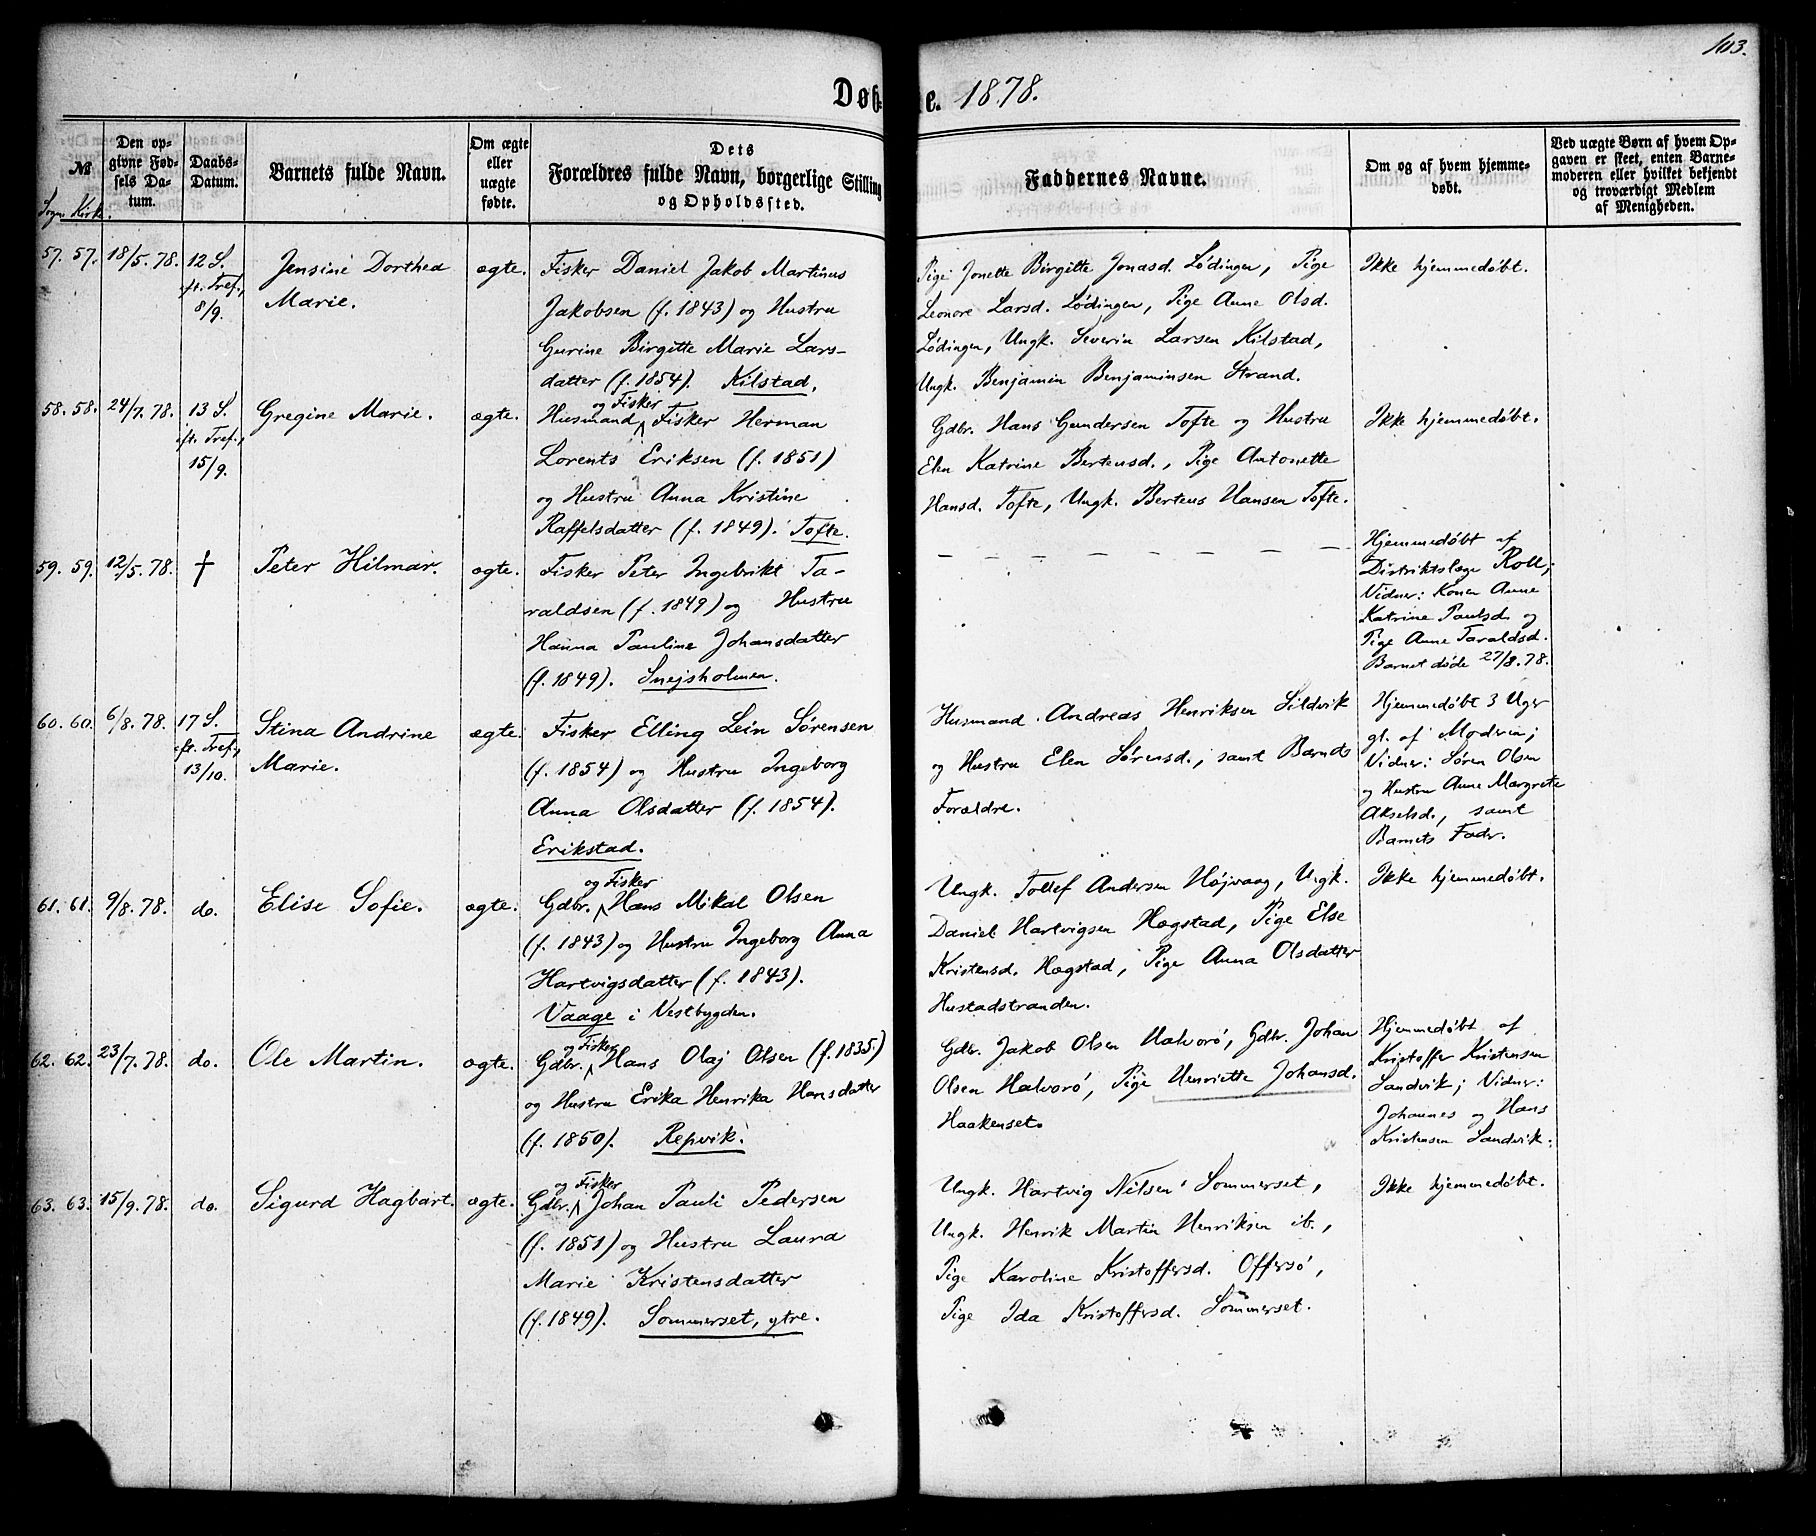 103.
Døbte. 1878.
№
Sogn. Kirk.
Den op-
givne Fød-
sels Da-
tum.
Daabs-
Datum.
Barnets fulde Navn.
Om ægte
eller
uægte
fødte.
Dets
Forældres fulde Navn, borgerlige Stilling
og Opholdssted.
Faddernes Navne.
Om og af hvem hjemme-
døbt.
Ved uægte Børn af hvem Op-
gaven er skeet, enten Barne-
moderen eller hvilket bekjendt
og troværdigt Medlem
af Menigheden.
57. 57. 18/5. 78.
12 S.
eft. Tref.,
8/9.
Jensine Dorthea
Marie.
ægte.
Fisker Daniel Jakob Martinus
Jakobsen (f. 1843) og Hustru
Gurine Birgitte Marie Lars-
datter (f. 1854). Kilstad.
Pige Jonette Birgitte Jonasd. Lødingen, Pige
Leonore Larsd. Lødingen, Pige Anne Olsd.
Lødingen, Ungk. Severin Larsen Kilstad,
Ungk. Benjamin Benjaminsen Strand.
Ikke hjemmedøbt.
58. 58. 24/7. 78.
13 S.
eft. Tref.,
15/9.
Gregine Marie.
ægte.
og Fisker
Husmand Fisker Herman
Lorents Eriksen (f. 1851)
og Hustru Anna Kristine
Raffelsdatter (f. 1849). Tofte.
Gdbr. Hans Gundersen Tofte og Hustru
Elen Katrine Bertensd., Pige Antonette
Hansd. Tofte, Ungk. Berteus Hansen Tofte.
Ikke hjemmedøbt.
59. 59. 12/5. 78.
†
Peter Hilmar.
ægte.
Fisker Peter Ingebrikt Ta-
raldsen (f. 1849) og Hustru
Hanna Pauline Johansdatter
(f. 1849). Snejsholmen.
— — — — — — — — —
Hjemmedøbt af
Distriktslæge Roll;
Vidner: Konen Anne
Katrine Paulsd. og
Pige Anne Taraldsd.
Barnet døde 27/8. 78.
60. 60. 6/8. 78.
17 S.
eft. Tref.,
13/10.
Stina Andrine
Marie.
ægte.
Fisker Elling Lein Sørensen
(f. 1854) og Hustru Ingeborg
Anna Olsdatter (f. 1854).
Erikstad.
Husmand Andreas Henriksen Sildvik
og Hustru Elen Sørensd., samt Barnets
Forældre.
Hjemmedøbt 3 Uger
gl. af Modren;
Vidner: Søren Olsen
og Hustru Anne Margrete
Akselsd., samt
Barnets Fader.
61. 61. 9/8. 78.
do.
Elise Sofie.
ægte.
og Fisker
Gdbr. Hans Mikal Olsen
(f. 1843) og Hustru Ingeborg Anna
Hartvigsdatter (f. 1843).
Vaage i Vestbygden.
Ungk. Tollef Andersen Højvaag, Ungk.
Daniel Hartvigsen Hægstad, Pige Else
Kristensd. Hægstad, Pige Anna Olsdatter
Hustadstranden.
Ikke hjemmedøbt.
62. 62. 23/7. 78.
do.
Ole Martin.
ægte.
og Fisker
Gdbr. Hans Olaj Olsen (f. 1835)
og Hustru Erika Henrika Hansdatter
(f. 1850). Repvik.
Gdbr. Jakob Olsen Halvorø, Gdbr. Johan
Olsen Halvorø, Pige Henriette Johansd.
Haakenset.
Hjemmedøbt af
Kristoffer Kristensen
Sandvik; Vidner:
Johannes og Hans
Kristensen Sandvik.
63. 63. 15/9. 78.
do.
Sigurd Hagbart.
ægte.
og Fisker
Gdbr. Johan Pauli Pedersen
(f. 1851) og Hustru Laura
Marie Kristensdatter
(f. 1849). Sommerset, ytre.
Ungk. Hartvig Nilsen Sommerset,
Ungk. Henrik Martin Henriksen ib.,
Pige Karoline Kristoffersd. Offersø,
Pige Ida Kristoffersd. Sommerset.
Ikke hjemmedøbt.